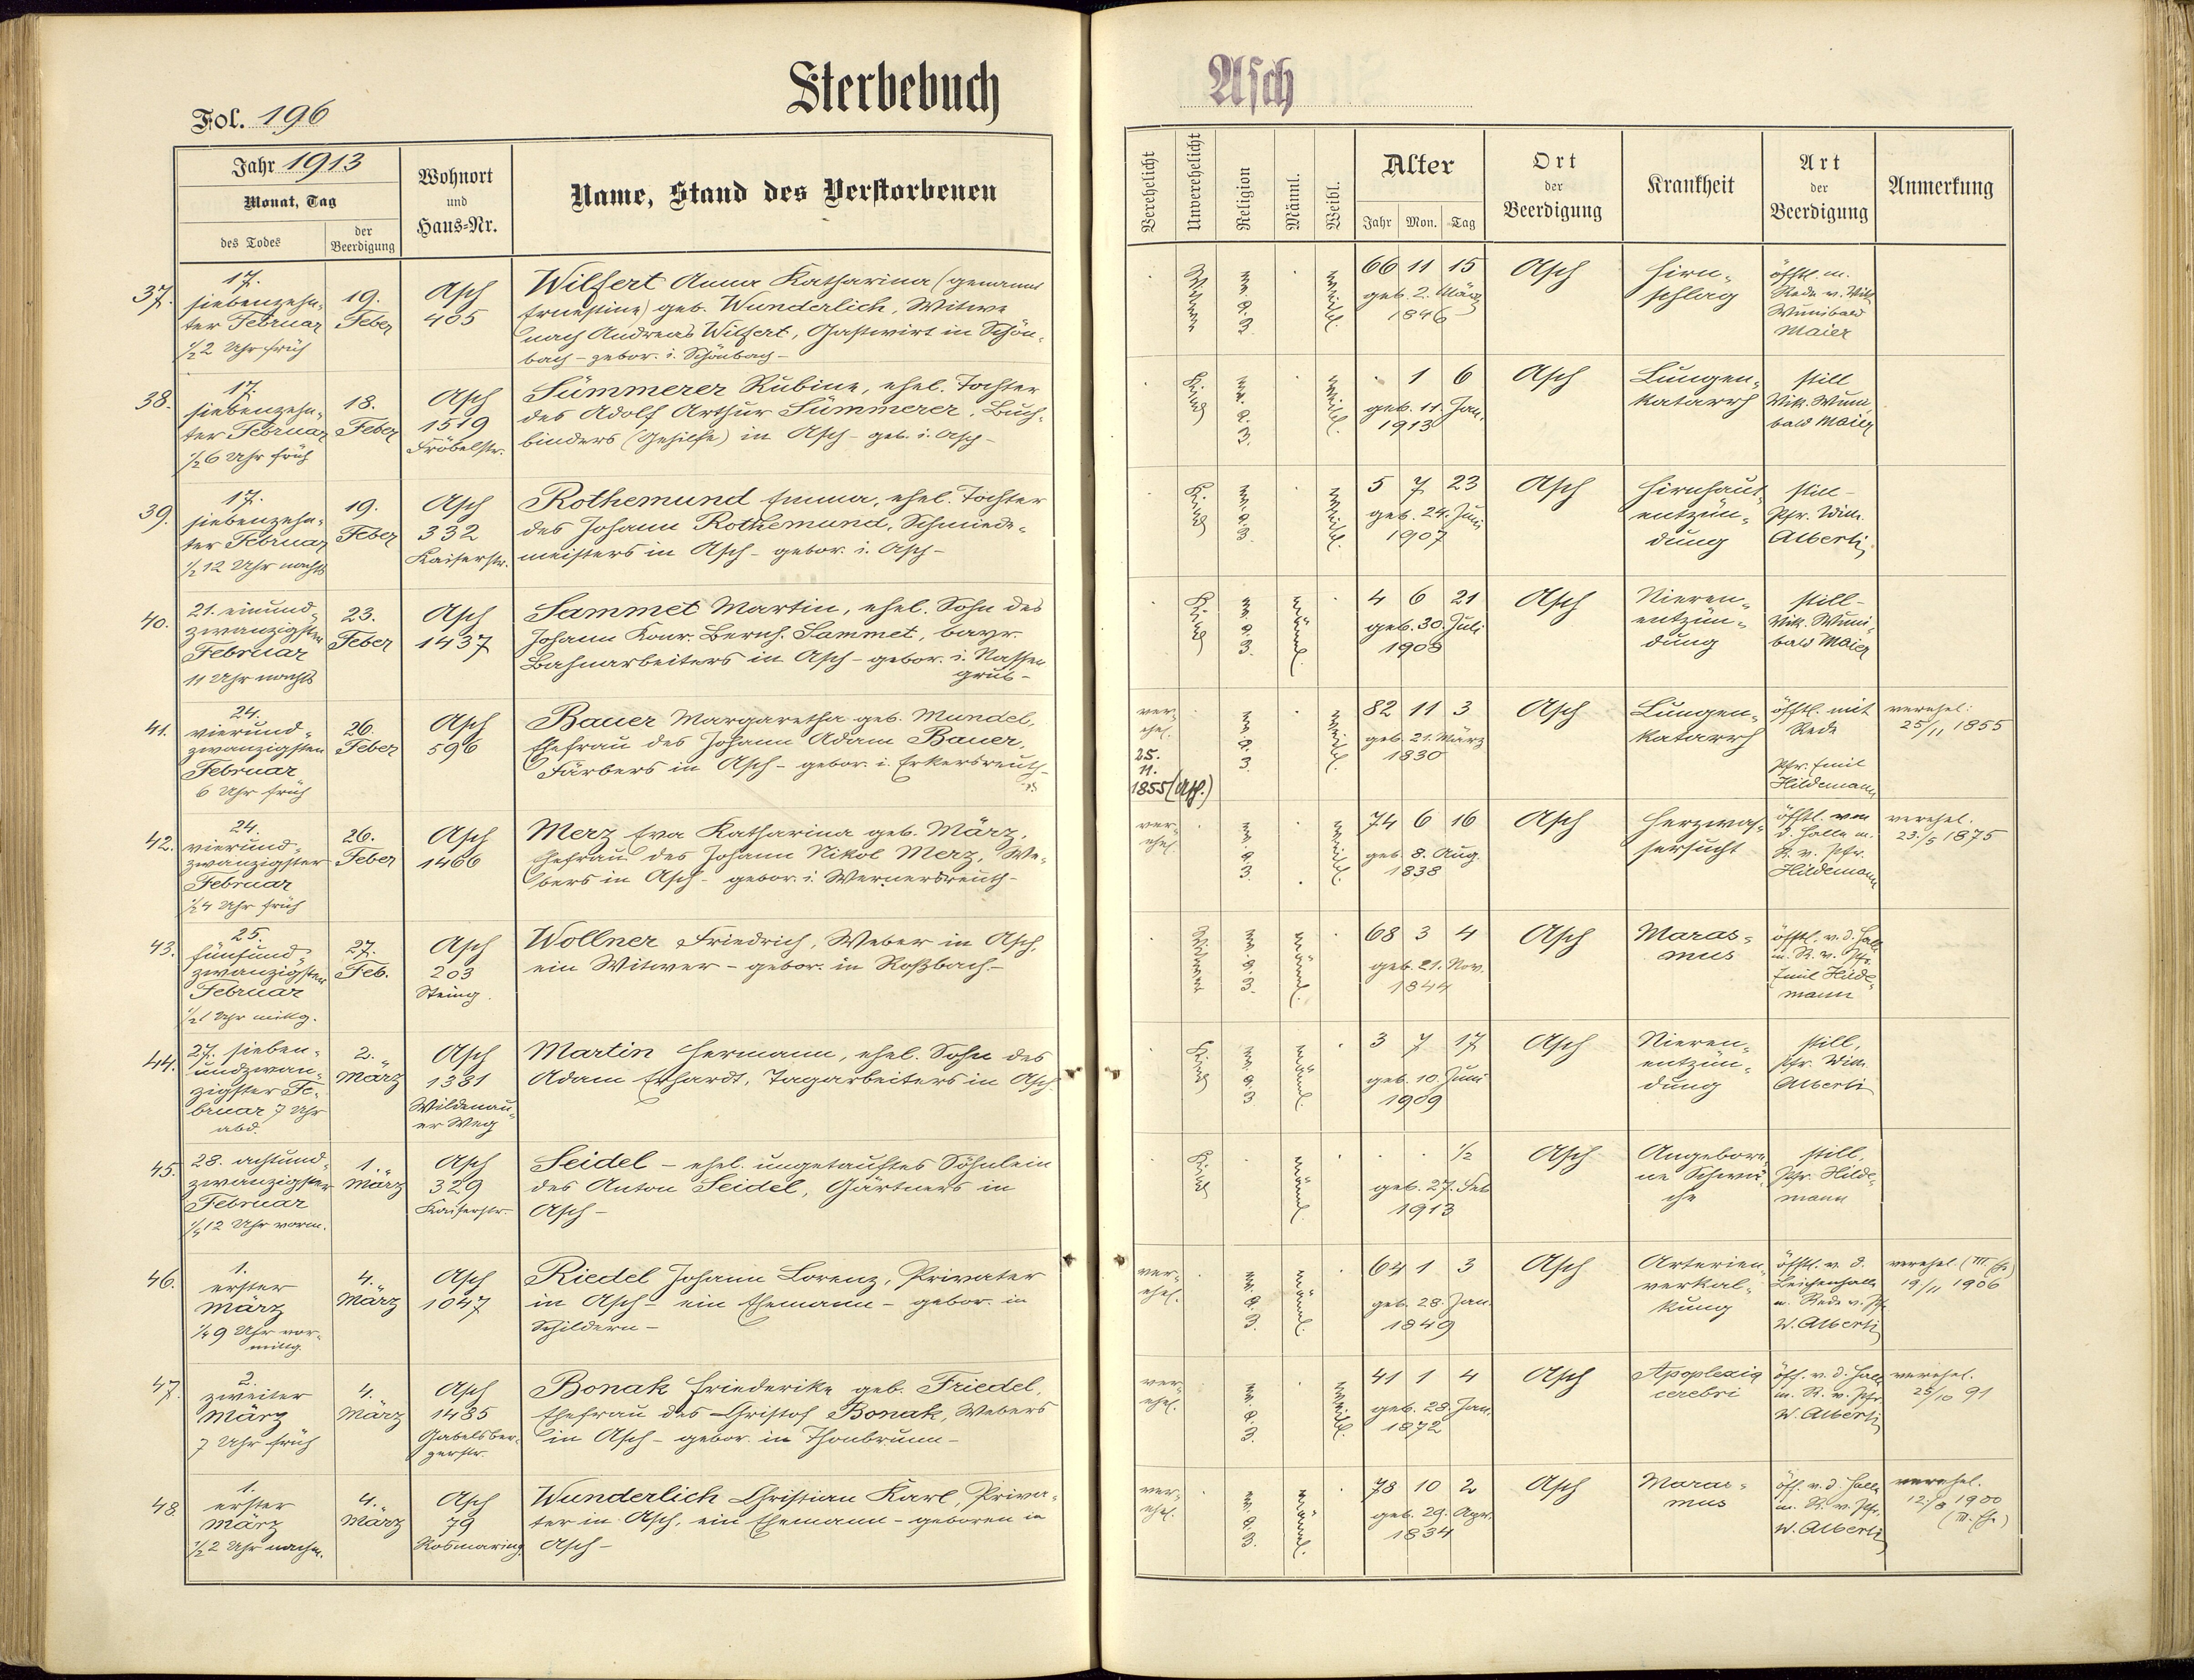 Sterbebuch
Asch
Fol. 196
Jahr 1913
Monat, Tag
des Todes
der Beerdigung
Wohnort
und
Haus-Nr.
Name, Stand des Verstorbenen
Verehelicht
Unverehelicht
Religion
Männl.
Weibl.
Alter
Jahr Mon. Tag
Ort
der
Beerdigung
Krankheit
Art
der
Beerdigung
Anmerkung
37.
17.
siebenzehn-
ter Februar
1/2 2 Uhr früh
19.
Feber
Asch
405
Wilfert Anna Katharina (genannt
Ernestine) geb. Wunderlich, Witwe
nach Andreas Wilfert, Gastwirt in Schön-
bach – gebor. i. Schönbach –
Witwe
weibl.
66 11 15
geb. 2. März
1846
Asch
Hirn-
schlag
öfftl. m.
Rede v. Vik.
Wunibald
Maier
38.
17.
siebenzehn-
ter Februar
1/2 6 Uhr früh
18.
Feber
Asch
1519
Fröbelstr.
Sümmerer Rubine, ehel. Tochter
des Adolf Arthur Sümmerer, Buch-
binders (Gehilfe) in Asch – geb. i. Asch –
Kind
weibl.
1 6
geb. 11. Jan.
1913
Asch
Lungen-
katarrh
still
Vik. Wuni-
bald Maier
39.
17.
siebenzehn-
ter Februar
1/2 12 Uhr nachts
19.
Feber
Asch
332
Kaiserstr.
Rothemund Emma, ehel. Tochter
des Johann Rothemund, Schmiede-
meisters in Asch – gebor. i. Asch –
Kind
weibl.
5 7 23
geb. 24. Juni
1907
Asch
Hirnhaut-
entzün-
dung
still –
Pfr. Wilh.
Alberti
40.
21. einund-
zwanzigsten
Februar
11 Uhr nachts
23.
Feber
Asch
1437
Sammet Martin, ehel. Sohn des
Johann Konr. Bernh. Sammet, bayr.
Bahnarbeiters in Asch – gebor. i. Nassen-
grub –
Kind
männl.
4 6 21
geb. 30. Juli
1908
Asch
Nieren-
entzün-
dung
still –
Vik. Wuni-
bald Maier
41.
24.
vierund-
zwanzigsten
Februar
6 Uhr früh
26.
Feber
Asch
596
Bauer Margaretha geb. Mundel,
Ehefrau des Johann Adam Bauer,
Färbers in Asch – gebor. i. Erkersreuth –
ver-
ehel.
25.
11.
1855 (Asch.)
weibl.
82 11 3
geb. 21. März
1830
Asch
Lungen-
katarrh
öfftl. mit
Rede
Pfr. Emil
Hildemann
verehel.
25/11 1855
42.
24.
vierund-
zwanzigster
Februar
1/2 4 Uhr früh
26.
Feber
Asch
1466
Merz Eva Katharina geb. März,
Ehefrau des Johann Nikol Merz, We-
bers in Asch – gebor. i. Wernersreuth –
ver-
ehel.
weibl.
74 6 16
geb. 8. Aug.
1838
Asch
Herzwas-
sersucht
öfftl. von
d. Halle m.
R. v. Pfr.
Hildemann
verehel.
23./5 1875
43.
25.
fünfund-
zwanzigsten
Februar
1/2 1 Uhr mittg.
27.
Feb.
Asch
203
Steing.
Wollner Friedrich, Weber in Asch,
ein Witwer – gebor. in Roßbach –
Witwer
männl.
68 3 4
geb. 21. Nov.
1844
Asch
Maras-
mus
öfftl. v. d. Halle
m. R. v. Pfr.
Emil Hilde-
mann
44.
27. sieben-
undzwan-
zigster Fe-
bruar 7 Uhr
abd.
2.
März
Asch
1381
Wildenau-
er Weg
Martin Hermann, ehel. Sohn des
Adam Erhardt, Tagarbeiters in Asch.
Kind
männl.
3 7 17
geb. 10. Juni
1909
Asch
Nieren-
entzün-
dung
still,
Pfr. Wilh.
Alberti
45.
28. achtund-
zwanzigster
Februar
1/2 12 Uhr vorm.
1.
März
Asch
329
Kaiserstr.
Seidel – ehel. ungetauftes Söhnlein
des Anton Seidel, Gärtners in
Asch –
Kind
männl.
1/2
geb. 27. Feb
1913
Asch
Angebore-
ne Schwä-
che
still,
Pfr. Hilde-
mann
46.
1.
erster
März
1/4 9 Uhr vor-
mittg.
4.
März
Asch
1047
Riedel Johann Lorenz, Privater
in Asch – ein Ehemann – gebor. in
Schildern –
ver-
ehel.
männl.
64 1 3
geb. 28. Jan.
1849
Asch
Arterien-
verkal-
kung
öfftl. v. d.
Leichenhalle
m. Rede v. Pfr.
W. Alberti
verehel. (III. Ehe)
19/11 1906
47.
2.
zweiter
März
7 Uhr früh
4.
März
Asch
1485
Gabelsber-
gerstr.
Bonak Friederike geb. Friedel,
Ehefrau des Christof Bonak, Webers
in Asch – gebor. in Thonbrunn –
ver-
ehel.
weibl.
41 1 4
geb. 28. Jan.
1872
Asch
Apoplexia
cerebri
öff. v. d. Halle
m. R. v. Pfr.
W. Alberti
verehel.
25/10 91
48.
1.
erster
März
1/2 2 Uhr nachm.
4.
März
Asch
79
Rosmaring.
Wunderlich Christian Karl, Priva-
ter in Asch, ein Ehemann – geboren in
Asch –
ver-
ehel.
männl.
78 10 2
geb. 29. Apr.
1834
Asch
Maras-
mus
öff. v. d. Halle
m. R. v. Pfr.
W. Alberti
verehel.
12./8 1900
(III. Ehe)